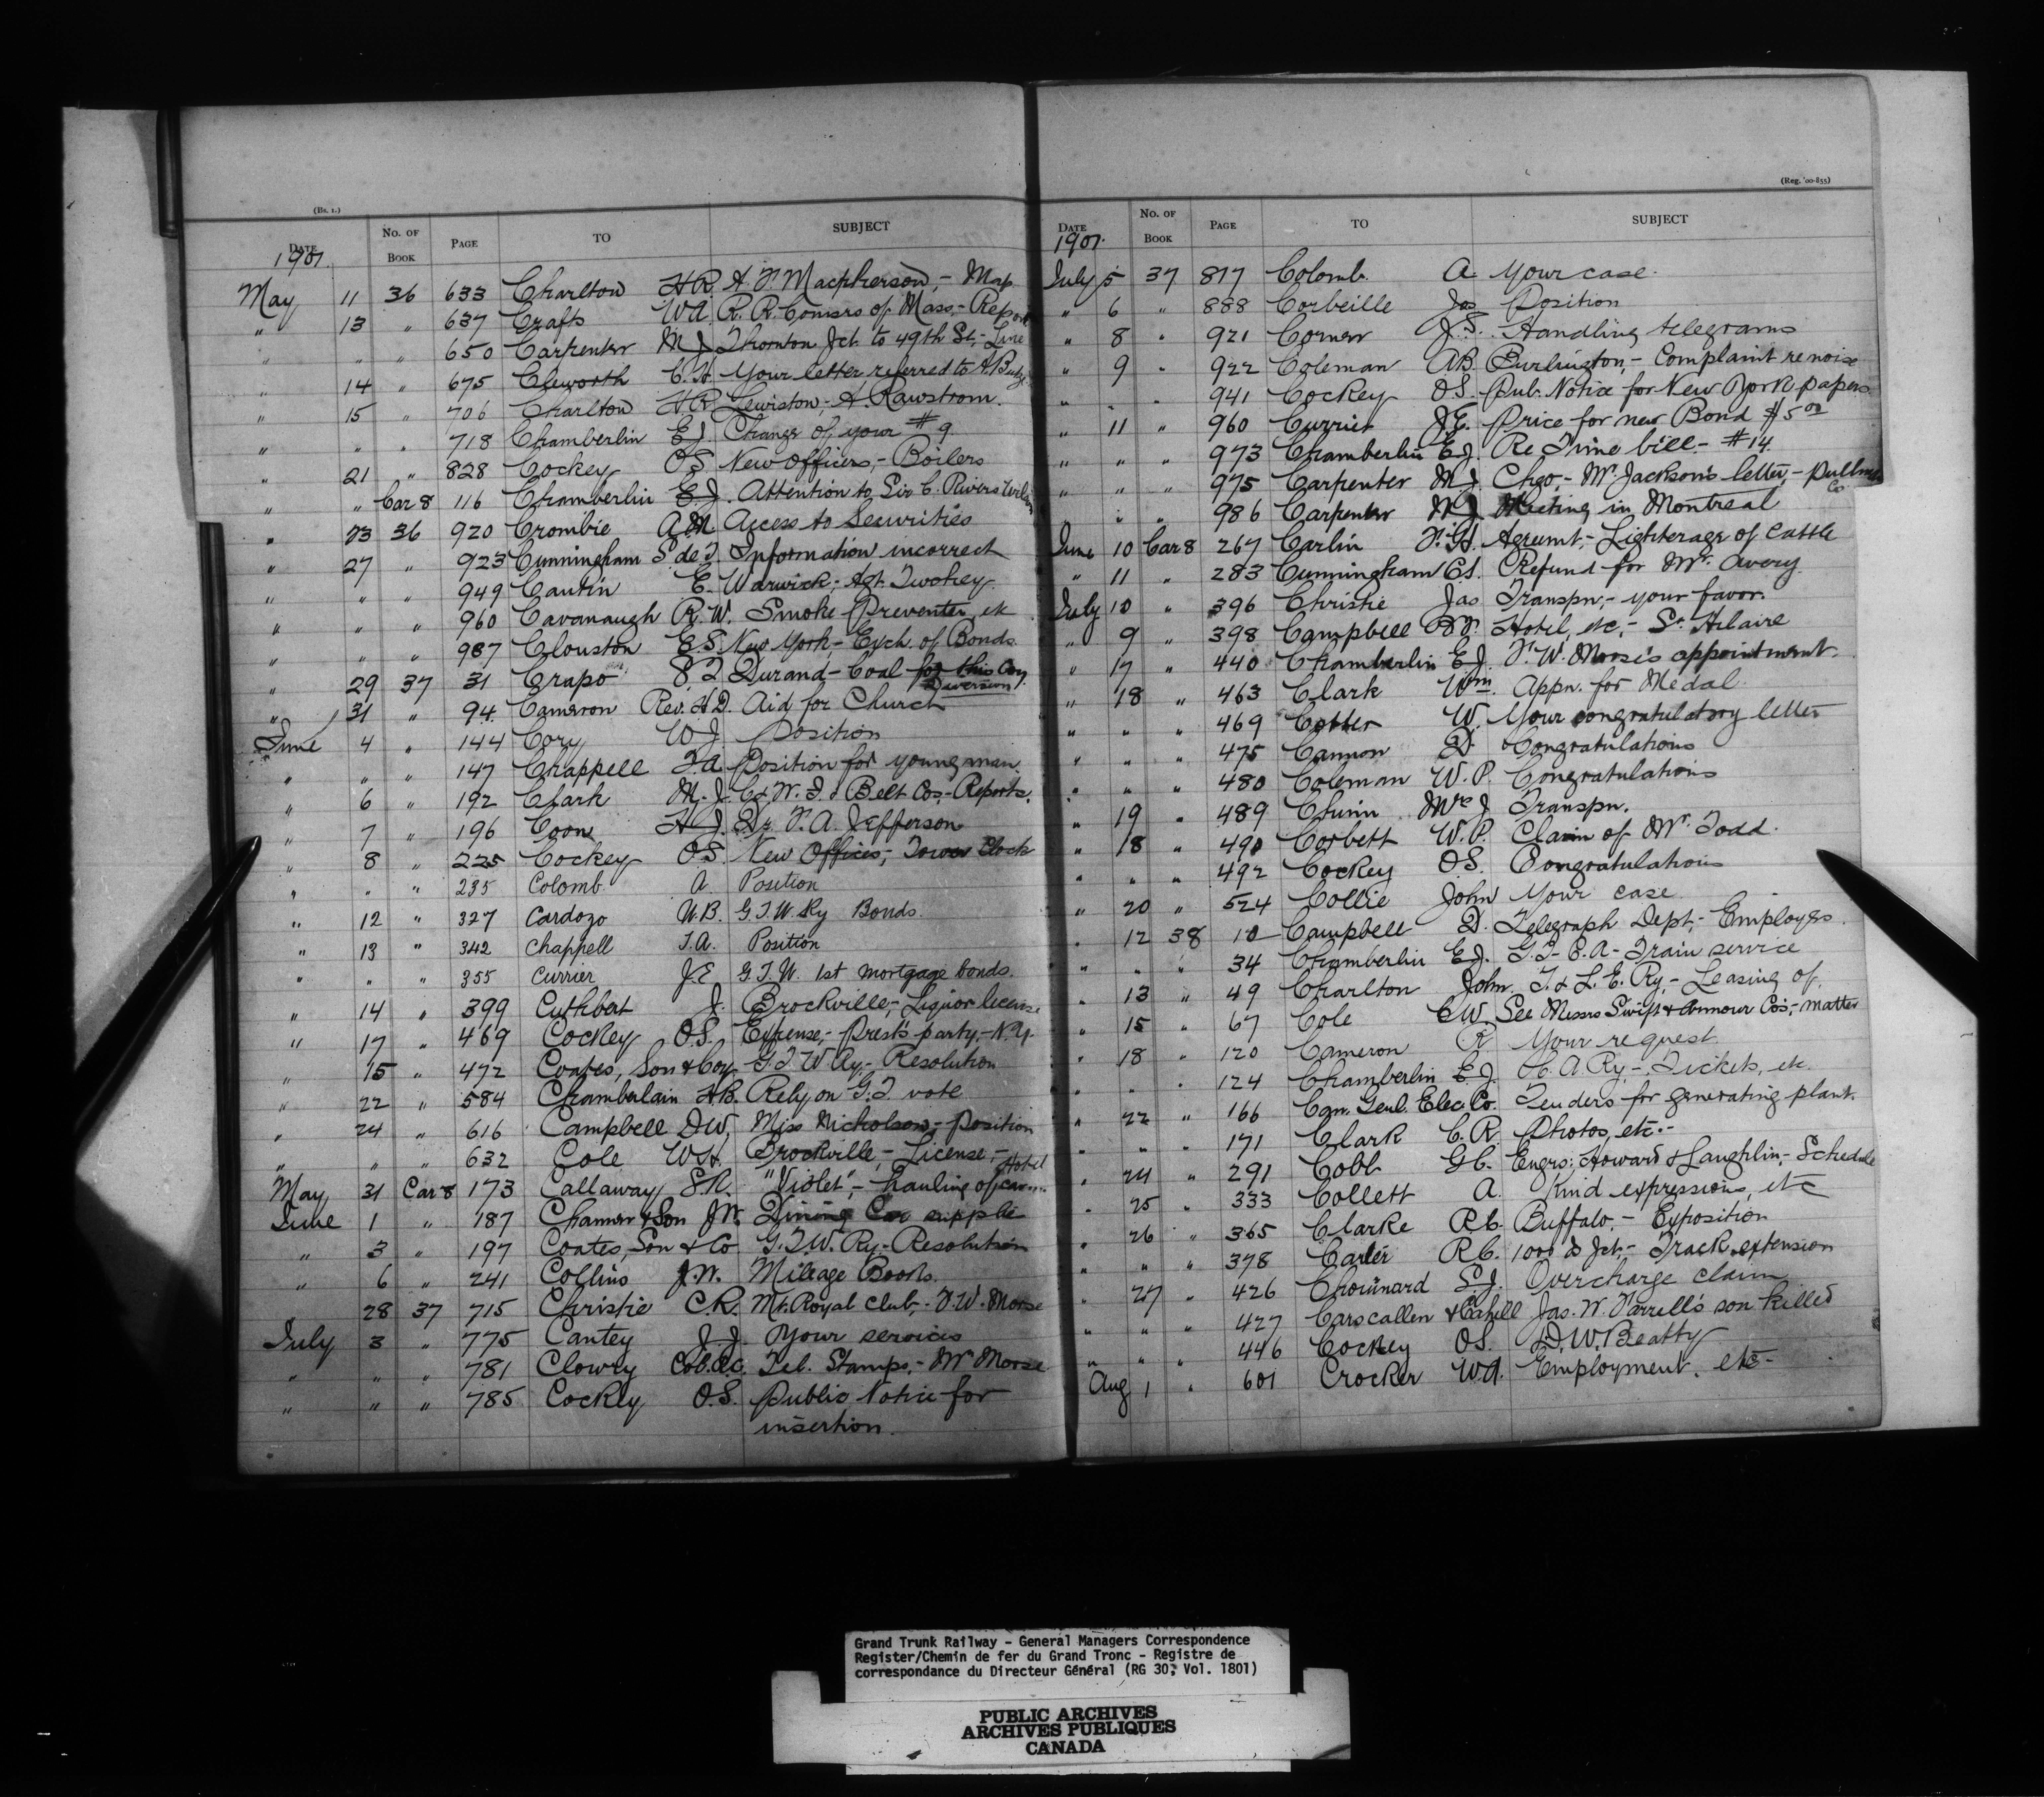 (Bs. 1.)
DATE No. OF BOOK PAGE TO SUBJECT
1901.
May 11 36 633 Charlton H R. A. F. Macpherson,- Map
" 13 " 637 Crafts W A. R. R. Comsrs of Mass,- Report
" " " 650 Carpenter M J. Thornton Jct. to 49th St,- Line
" 14 " 675 Cleworth C. H Your letter referred to
" 15 " 706 Charlton H R. Lewiston,- A. Rawstrom.
" " " 718 Chamberlin E J. Change of your # 9
" 21 " 828 Cockey O S. New Officers,- Boilers
" " Car 8 116 Chamberlin E J. Attention to Sir C. Rivers Wilson
" 23 36 920 Crombie A. M. Access to Securities
" 27 " 923 Cunningham S de I. Information incorrect
" " " 949 Cantin E. Warwick,- Agt. Twohey
" " " 960 Cavanaugh R. W. Smoke Preventer, etc
" " " 987 Clouston E. S. New York - Exch. of Bonds.
" 29 37 31 Crapo Durand - Coal for this Coy. Diversion
" 31 " 94. Cameron Rev. H D. Aid for Church
June 4 " 144 Cory W J. Position
" " " 147 Chappell T. A. Position for young man
" 6 " 192 Clark M. J. C & W. I. & Belt Cos,- Reports.
" 7 " 196 Coon H J. Dr. F. A. Jefferson
" 8 " 225 Cockey O S. New Offices,- Tower Clock
" " " 235 Colomb. A. Position
" 12 " 327 Cardozo N. B. G. T. W. Ry Bonds.
" 13 " 342 Chappell T. A. Position
" " " 355 Currier J. E G. T. W. 1st mortgage bonds.
" 14 " 399 Cuthbert J. Brockville,- Liquor license
" 17 " 469 Cockey O S. Expense,- Prest's party,- N. Y.
" 15 " 472 Coates, Son & Coy G T W Ry,- Resolution
" 22 " 584 Chamberlain H. B. Rely on G. T. vote
" 24 " 616 Campbell D W, Miss Nicholson,- Position
" " " 632 Cole W H. Brockville,- License,- Hotel
May 31 Car 8 173 Callaway S. R. "Violet",- hauling of car
June 1 " 187 & Son J W. Dining Car supplies
" 3 " 197 Coates, Son & Co G. T. W. Ry,- Resolution
" 6 " 241 Collins J. W. Mileage Books.
28 37 715 Christie C. R. Mt. Royal Club,- F. W. Morse
July 3 " 775 Cantey J. J. Your services
" " " 781 Clowry Col. R. C. Tel. Stamps,- Mr Morse
" " " 785 Cockey O. S. Public Notice for
insertion.
(Reg. '00-855)
DATE No. OF BOOK PAGE TO SUBJECT
1901.
July 5 37 817 Colomb. A. Your case.
" 6 " 888 Corbeille Jas Position
" 8 " 921 Corner J. S. Handling telegrams
" 9 " 922 Coleman A B. Burlington,- Complaint re noise
" " " 941 Cockey O S. Pub. Notice for New York papers
" 11 " 960 Currier J E. Price for new Bond $ 5 00
" " " 973 Chamberlin E J. Re Time bill - # 14.
" " " 975 Carpenter M J. Chgo,- Mr. Jackson's letter,- Pullman Co
" " " 986 Carpenter M J. Meeting in Montreal
June 10 Car 8 267 Carlin F. H. Agreemt,- Lighterage of Cattle
" 11 " 283 Cunningham C. S. Refund for Mr. Avery
July 10 " 396 Christie Jas Transpn,- your favor.
" 9 " 398 Campbell Hotel, etc,- St. Hilaire
" 17 " 440 Chamberlin E J. F. W. Morse's appointment
" 18 " 463 Clark Wm. Appn. for Medal
" " " 469 Cotter W. Your congratulatory letter
" " " 475 Cannon D. Congratulations
" " " 480 Coleman W. P. Congratulations
" 19 " 489 Chinn Mrs J Transpn.
" 18 " 490 Corbett W. P. Claim of Mr. Todd.
" " " 492 Cockey O S. Congratulations
" 20 " 524 Collie John Your case
" 12 38 10 Campbell D. Telegraph Dept,- Employes.
" " " 34 Chamberlin E J. G. T - C. A - Train service
" 13 " 49 Charlton John. T. & L. E. Ry,- Leasing of
" 15 " 67 Cole E W. See Messrs Swift & Armour Co's,- matter
" 18 " 120 Cameron R Your request
" " " 124 Chamberlin E J. C. A. Ry,- Tickets, etc.
" 22 " 166 Can. Genl. Elec. Co. Tenders for generating plant.
" " " 171 Clark C. R. Photos, etc.-
" 24 " 291 Cobb G C. Engrs: Howard & Laughlin,- Schedule
" 25 " 333 Collett A. Kind expressions, etc
" 26 " 365 Clarke R C. Buffalo,- Exposition
" " " 378 Carter R C. 1000 Jct,- Track extension
" 27 " 426 Chouinard S. J. Overcharge claim
" " " 427 Carscallen & Cahill Jas. W. Farrell's son killed
" " " 446 Cockey O S. D. W. Beatty
Aug 1 " 601 Crocker W. A. Employment. etc -
Grand Trunk Railway - General Managers Correspondence
Register/Chemin de fer du Grand Tronc - Registre de
correspondance du Directeur Général (RG 30, Vol. 1801)
PUBLIC ARCHIVES
ARCHIVES PUBLIQUES
CANADA